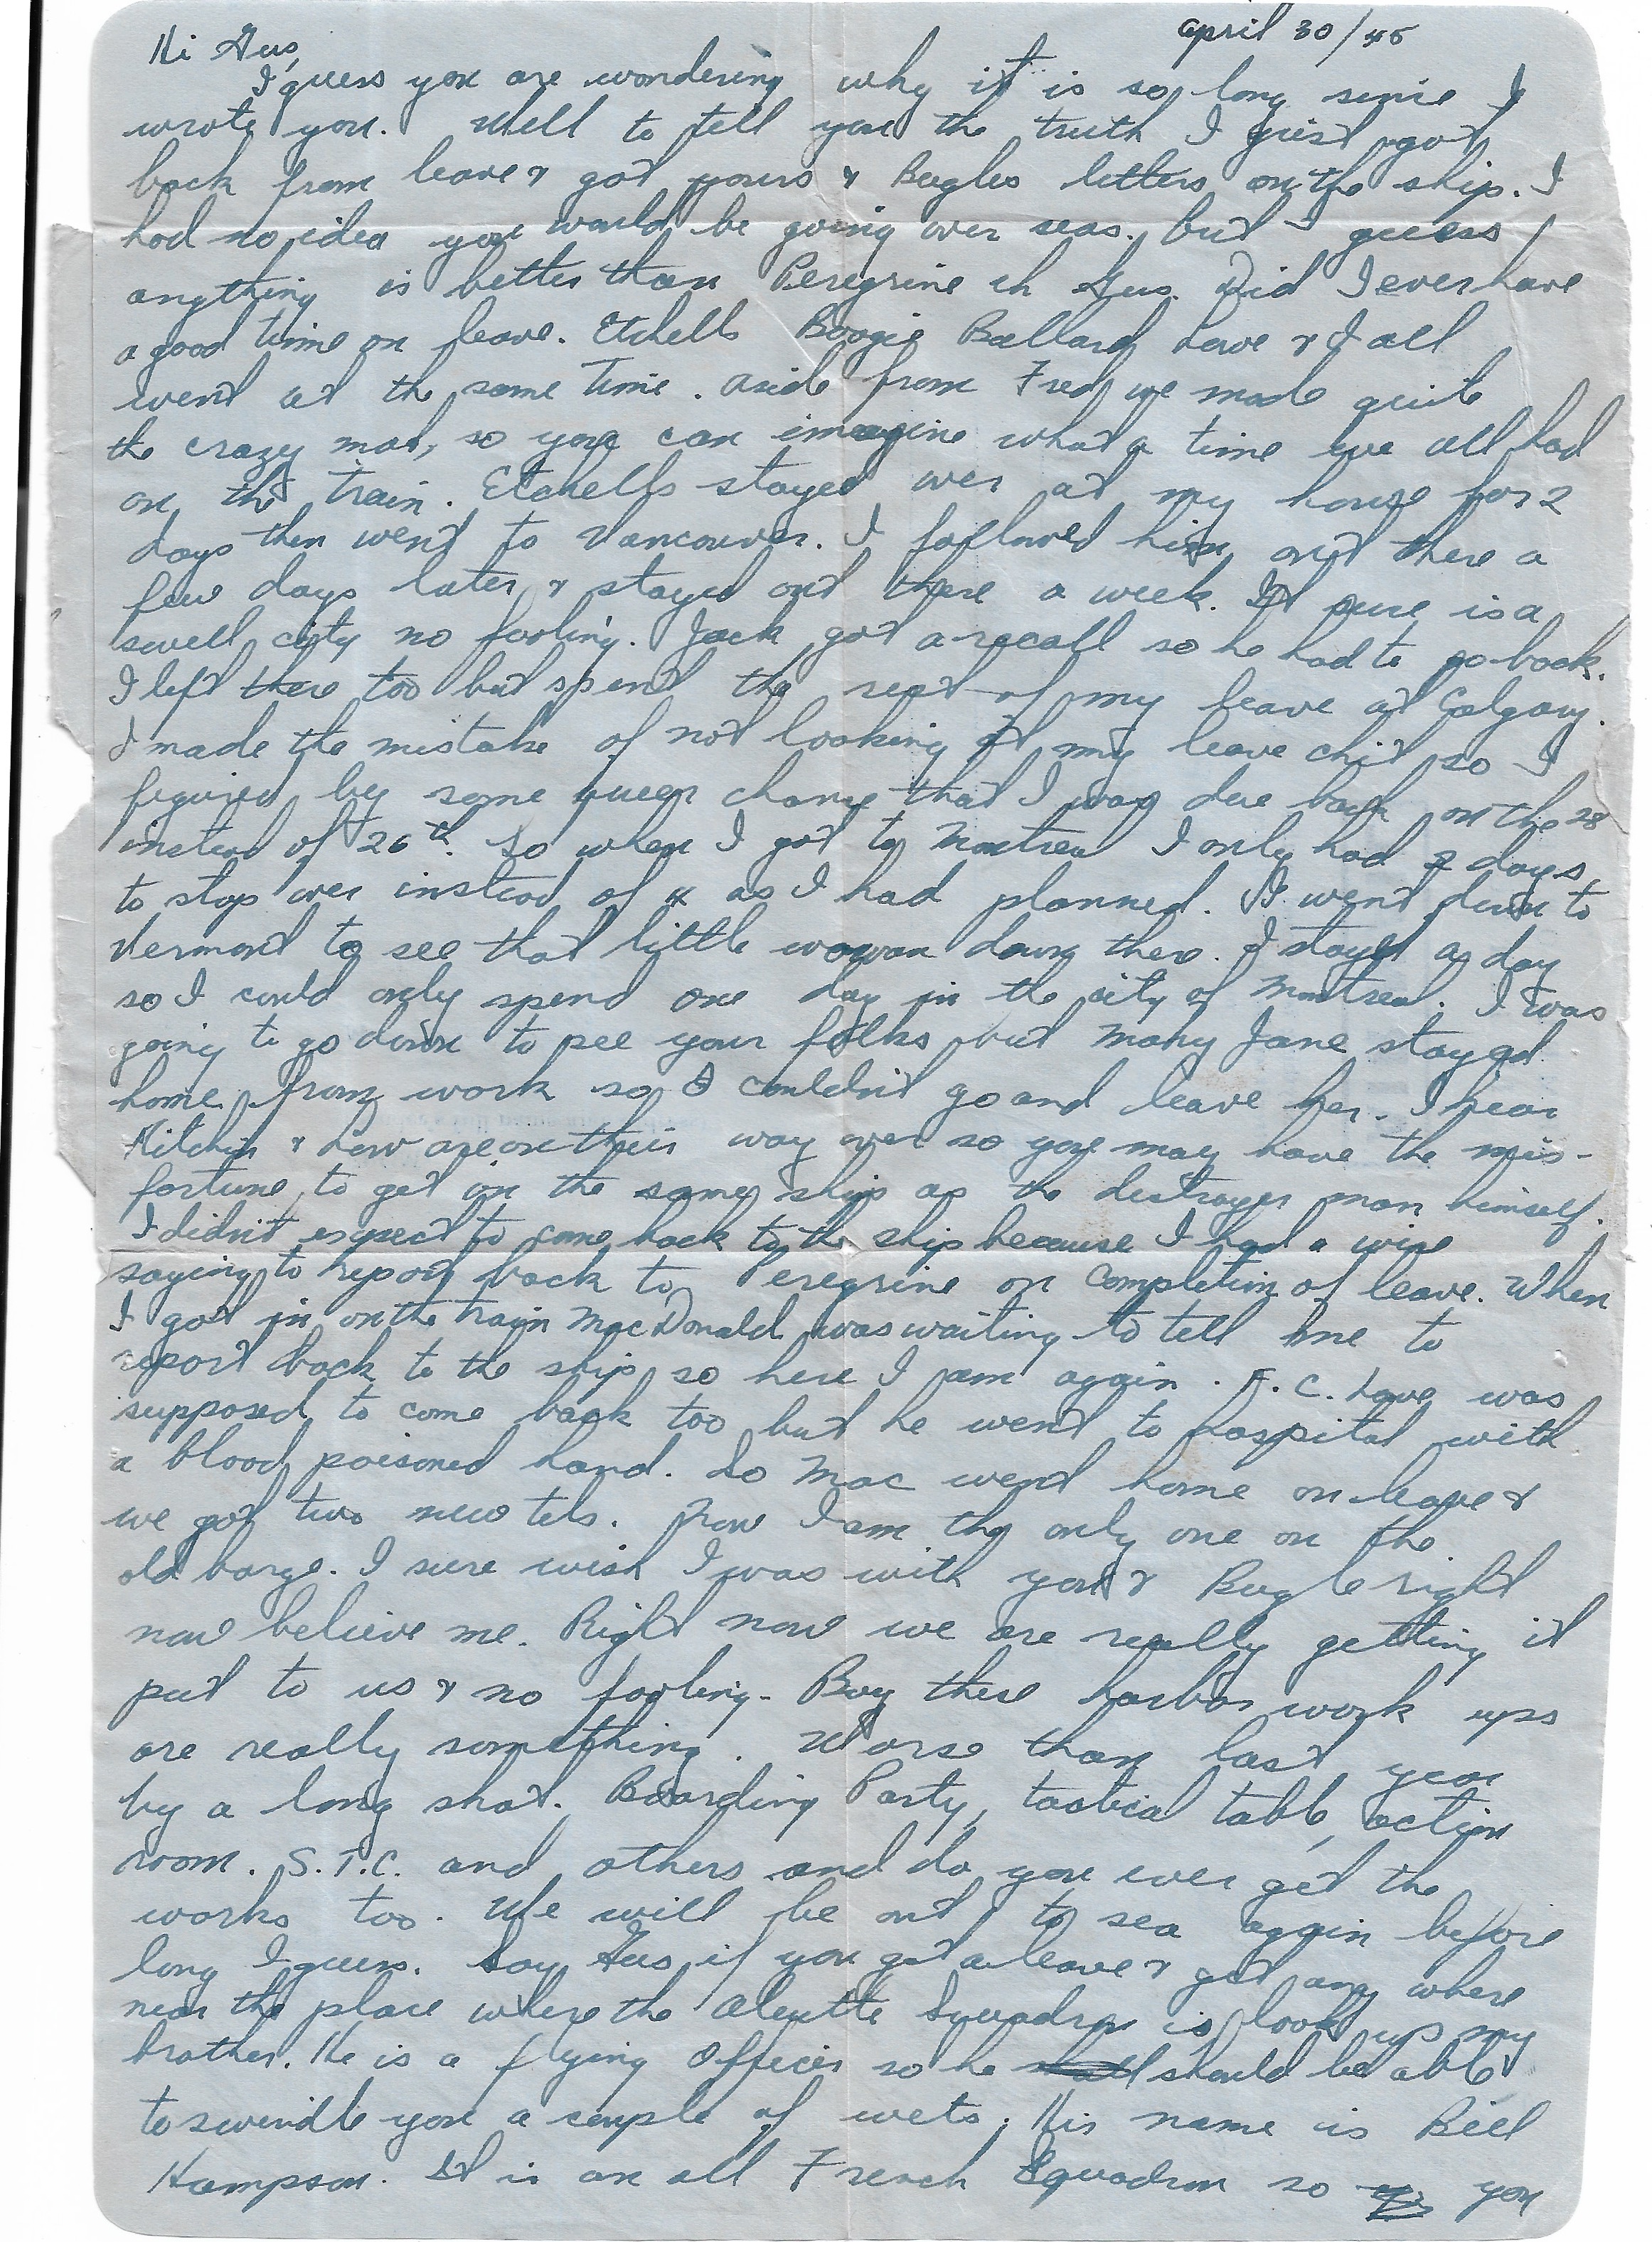 april 30/45
Hi Gus,
I guess you are wondering why it is so long since I
wrote you. Well to tell you the truth I just got
back from leave & got yours & Bugles letters on the ship. I
had no idea you would be going over seas. but I guess
anything is better than Peregrine eh Gus. Did I ever have
a good time on leave. Etchells Boogie Ballard Lowe & I all
went at the same time. aside from Fred we made quite
the crazy mob, so you can imagine what a time we all had
on the train. Etchells stayed over at my house for 2
days then went to Vancouver. I followed him out there a
few days later & stayed out there a week. It sure is a
swell city no fooling. Jack got a recall so he had to go back.
I left there too but spent the rest of my leave at Calgary.
I made the mistake of not looking at my leave chit so I
figured by some queer chance that I was due back on the 28
instead of 26th. So when I got to Montreal I only had 2 days
to stop over instead of 4 as I had planned. I went down to
Vermont to see that little woman down there. I stayed a day
so I could only spend one day in the city of Montreal. I was
going to go down to see your folks but Mary Jane stayed
home from work so I couldn't go and leave her. I hear
Kitchin & Low are on their way over so you may have the mis-
fortune to get on the same ship as the destroyer man himself.
I didn't expect to come back to the ship because I had a wire
saying to report back to Peregrine on completion of leave. When
I got in on the train MacDonald was waiting to tell me to
report back to the ship so here I am again. F. C. Lowe was
supposed to come back too but he went to hospital with
a blood poisoned hand. So Mac went home on leave &
we got two new tels. Now I am the only one on the
old barge. I sure wish I was with you & Bugle right
now believe me. Right now we are really getting it
put to us & no fooling. Boy these harbor work ups
are really something. Worse than last year
by a long shot. Boarding Party, tactical table, action
room. S.T.C. and others and do you ever get the
works too. We will be out to sea again before
long I guess. Say Gus if you get a leave & get any where
near the place where the Aleutte Squadron is look up my
brother. He is a flying Officer so he should be able
to swindle you a couple of wets. His name is Bill
Hampson. It is an all French Squadron so you